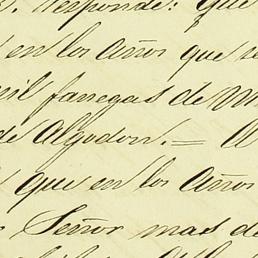 Responde: Que
en los años que se
mil fanegas de
de Algodon. = A
que en los años
Señor mas de